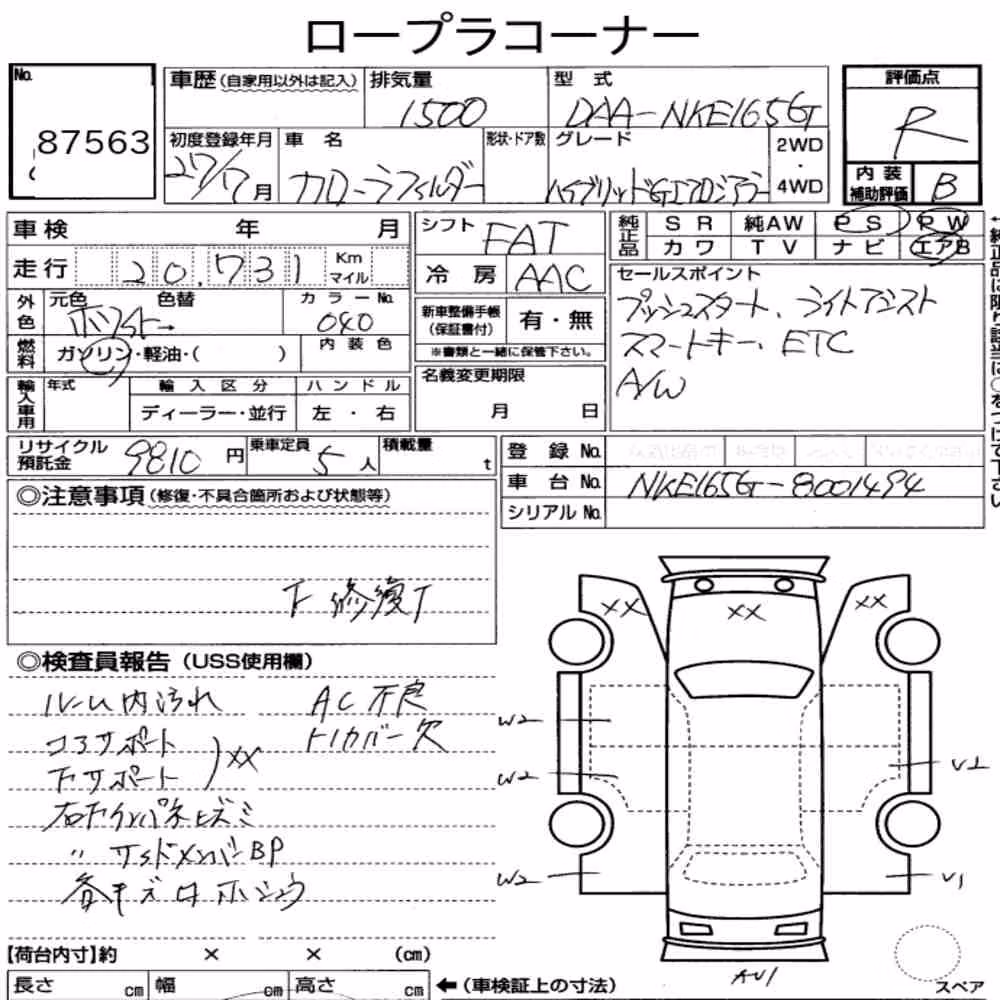 ロープラコーナー
No. 87563
車歴 (自家用以外は記入) 排気量 1500 型式 DAA-NKE165G
初度登録年月 27/7月 車名 カローラフィルダー 形状・ドア数 グレード ハイブリッドGエアロツアラー 2WD・4WD
評価点 R
内装補助評価 B
車検 年 月
走行 20,731 Km マイル
シフト FAT
冷房 AAC
純正品 SR 純AW PS PW
カワ TV ナビ エアB
←純正品に限り該当に○をつけて下さい
外色 元色 ホワイト→ 色替 カラーNo. 040
燃料 ガソリン・軽油・( ) 内装色
新車整備手帳(保証書付) 有・無
※書類と一緒に保管下さい。
セールスポイント
プッシュスタート、ライトアシスト
スマートキー、ETC
A/W
輸入車用 年式 輸入区分 ハンドル
ディーラー・並行 左・右
名義変更期限
月 日
リサイクル預託金 9810円 乗車定員 5人 積載量 t
登録No.
車台No. NKE165G-8001494
シリアルNo.
◎注意事項(修復・不具合箇所および状態等)
修復
◎検査員報告(USS使用欄)
ルーム内汚れ AC不良
コアサポート
下サポート XX
トノカバー欠
右Fインパネヒズミ
〃 サイドメンバーBP
各キズ
XX XX XX
W2
W2 V1
W2 V1
AU1
スペア
【荷台内寸】約 × × (cm)
長さ cm 幅 cm 高さ cm ←(車検証上の寸法)